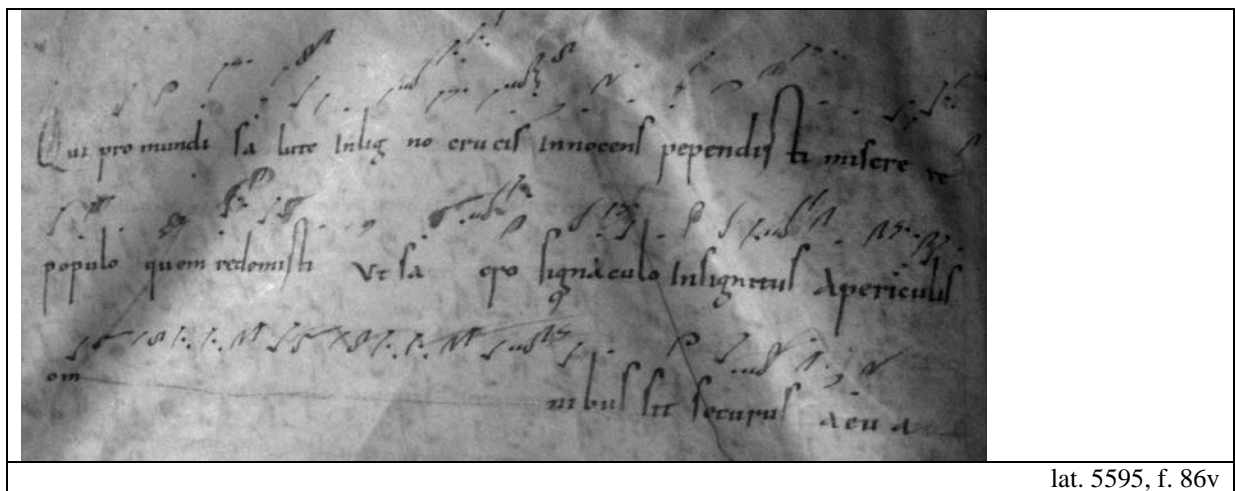 Qui pro mundi sa lute Inlig no crucis Innocens pependisti misere re
populo quem redemisti Ut sa cro signaculo Insignitus Apericulis
om nibus sit securus aeu a
lat. 5595, f. 86v